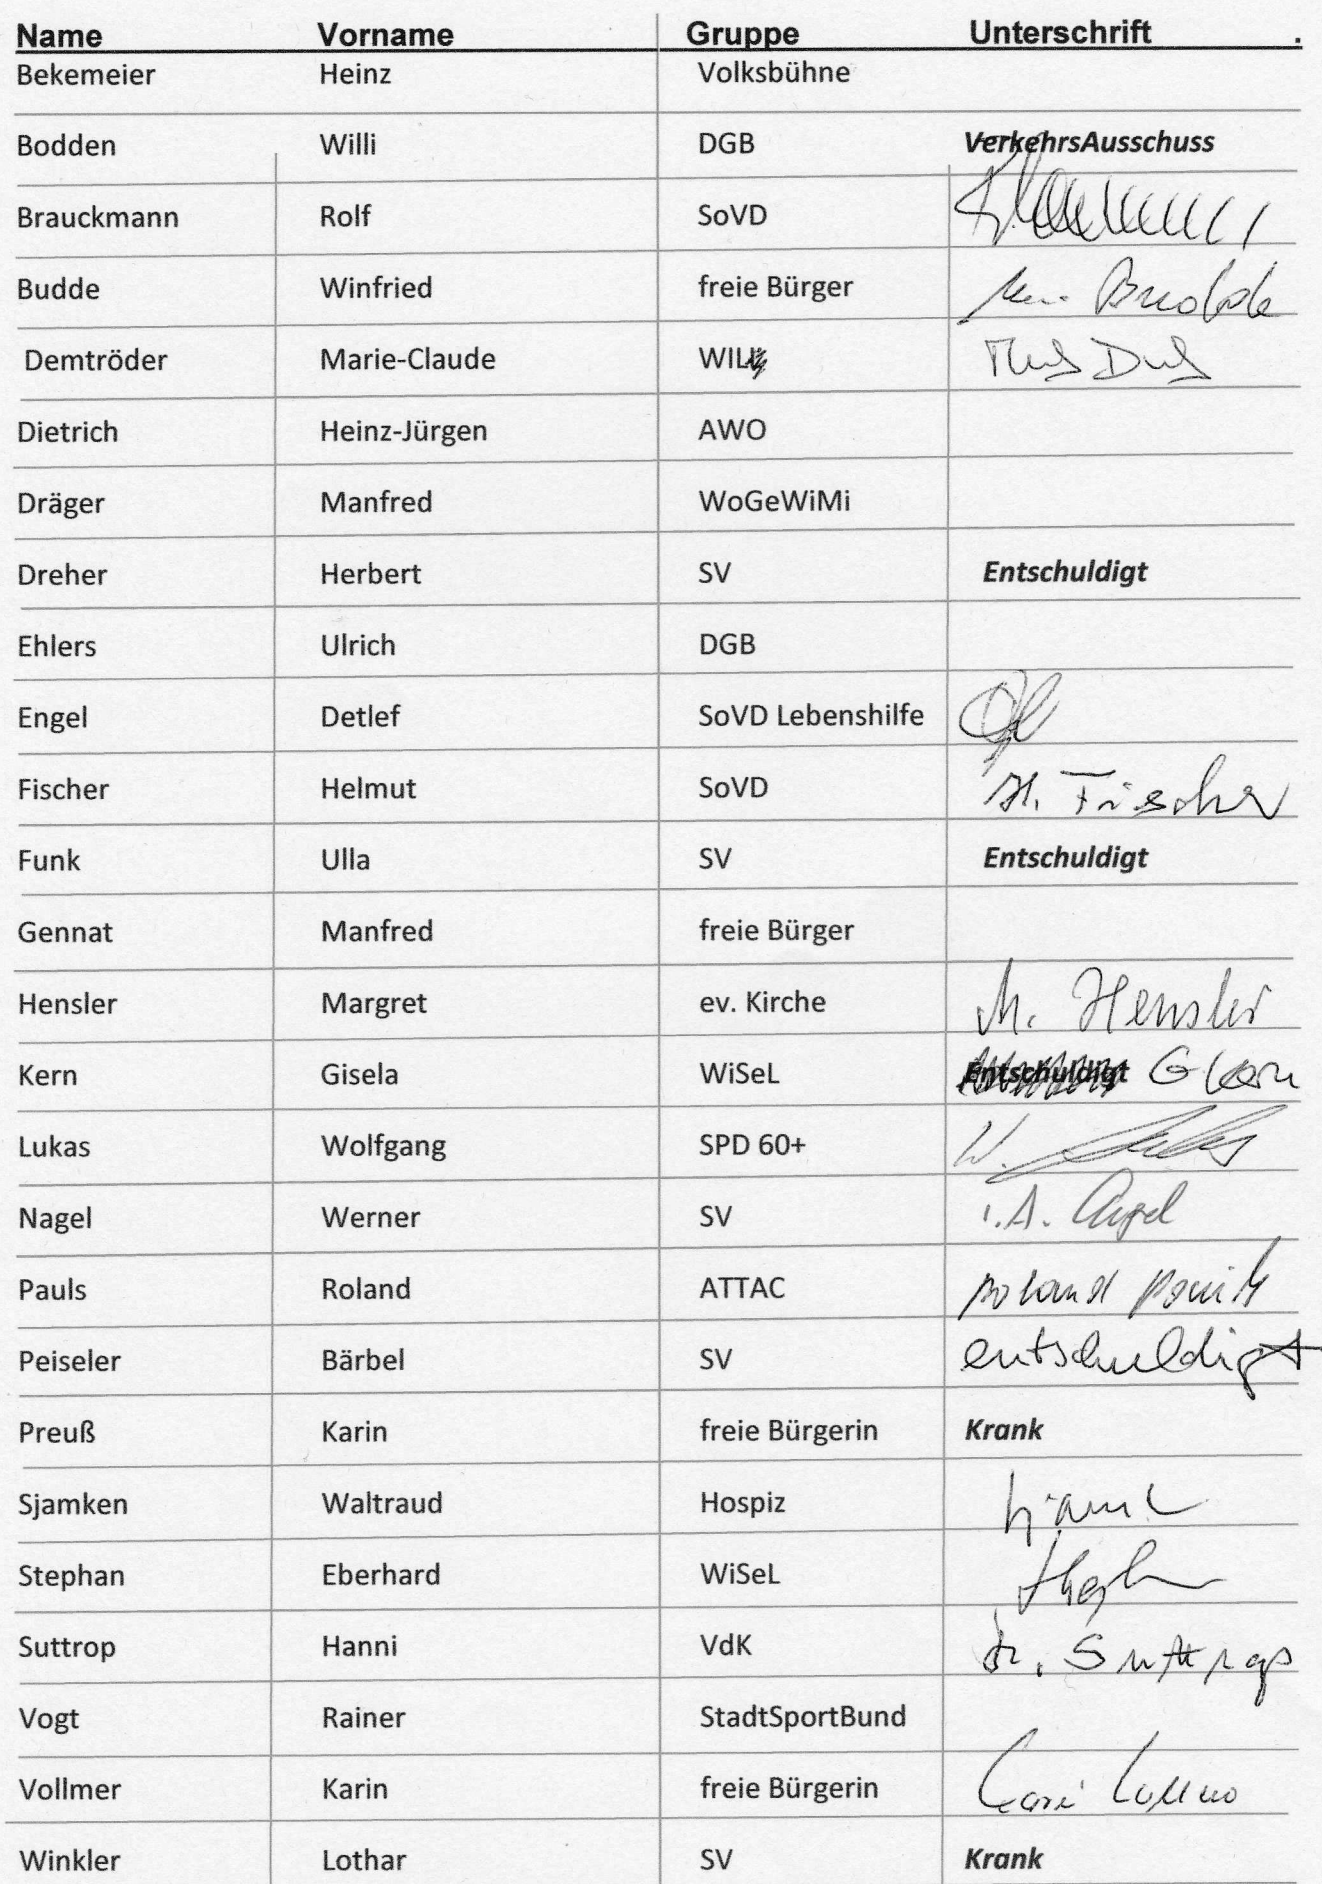 Name Vorname Gruppe Unterschrift .
Bekemeier Heinz Volksbühne
Bodden Willi DGB VerkehrsAusschuss
Brauckmann Rolf SoVD
Budde Winfried freie Bürger Budde
Demtröder Marie-Claude WIL
Dietrich Heinz-Jürgen AWO
Dräger Manfred WoGeWiMi
Dreher Herbert SV Entschuldigt
Ehlers Ulrich DGB
Engel Detlef SoVD Lebenshilfe
Fischer Helmut SoVD H. Fischer
Funk Ulla SV Entschuldigt
Gennat Manfred freie Bürger
Hensler Margret ev. Kirche M. Hensler
Kern Gisela WiSeL Entschuldigt G Kern
Lukas Wolfgang SPD 60+ W. Lukas
Nagel Werner SV i.A.
Pauls Roland ATTAC Roland Pauls
Peiseler Bärbel SV entschuldigt
Preuß Karin freie Bürgerin Krank
Sjamken Waltraud Hospiz
Stephan Eberhard WiSeL
Suttrop Hanni VdK H. Suttrop
Vogt Rainer StadtSportBund
Vollmer Karin freie Bürgerin Karin Vollmer
Winkler Lothar SV Krank